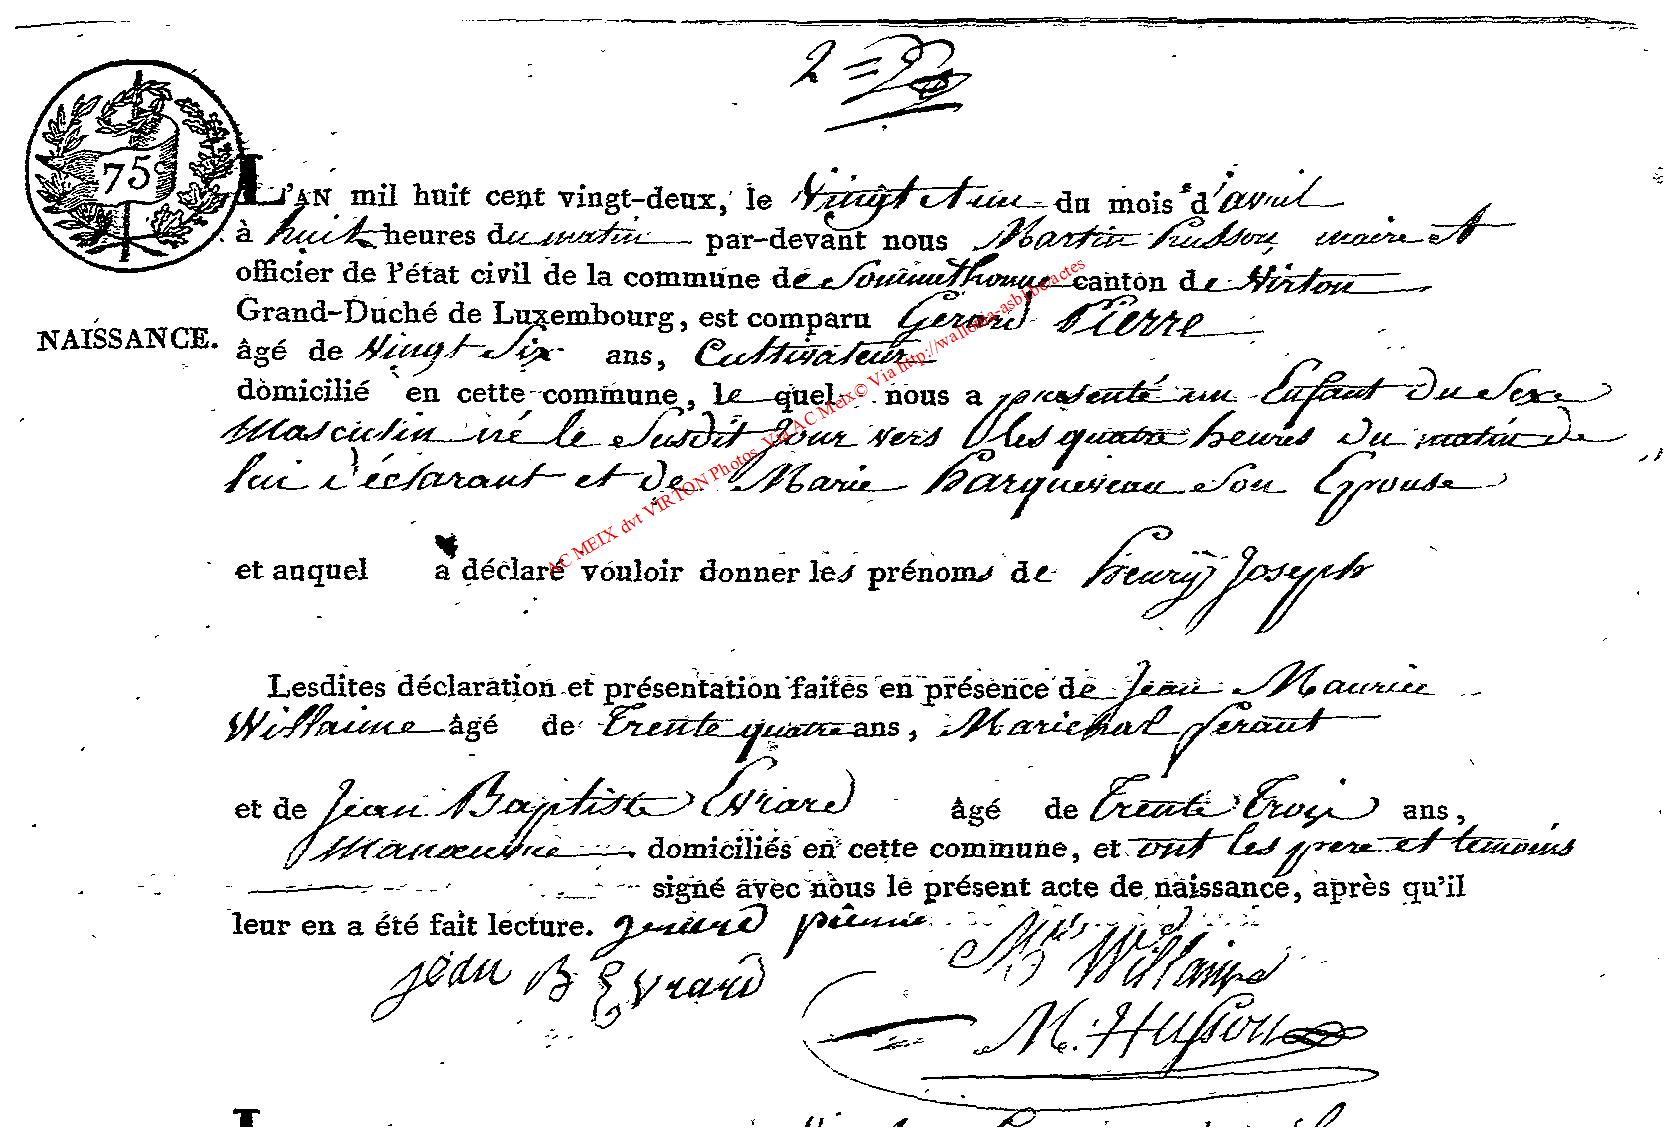 75
L'AN mil huit cent vingt-deux, le Vingt et un du mois d'avril
à huit heures du matin par-devant nous Martin husson, maire et
officier de l'état civil de la commune de Sommethonne canton de Virton
Grand-Duché de Luxembourg, est comparu Gerard Pierre
NAISSANCE.
âgé de Vingt Six ans, Cultivateur
domicilié en cette commune, le quel nous a presenté un Enfant du Sexe
Masculin né le Susdit jour vers les quatre heures du matin de
lui déclarant et de Marie harqueveau Son Epouse
et auquel a déclaré vouloir donner les prénoms de henrÿ Joseph
Lesdites déclaration et présentation faites en présence de Jean Maurice
Willaime âgé de Trente quatre ans, Marichal feraut
et de Jean Baptiste Evrard âgé de Trente Trois ans,
Manoeuvre domiciliés en cette commune, et ont les pere et temoins
signé avec nous le présent acte de naissance, après qu'il
leur en a été fait lecture. gerard pierre
jean B Evrard Willaime
M. Husson
AC MEIX dvt VIRTON Photos Via AC Meix© Via http://wallonia-asbl.be/actes